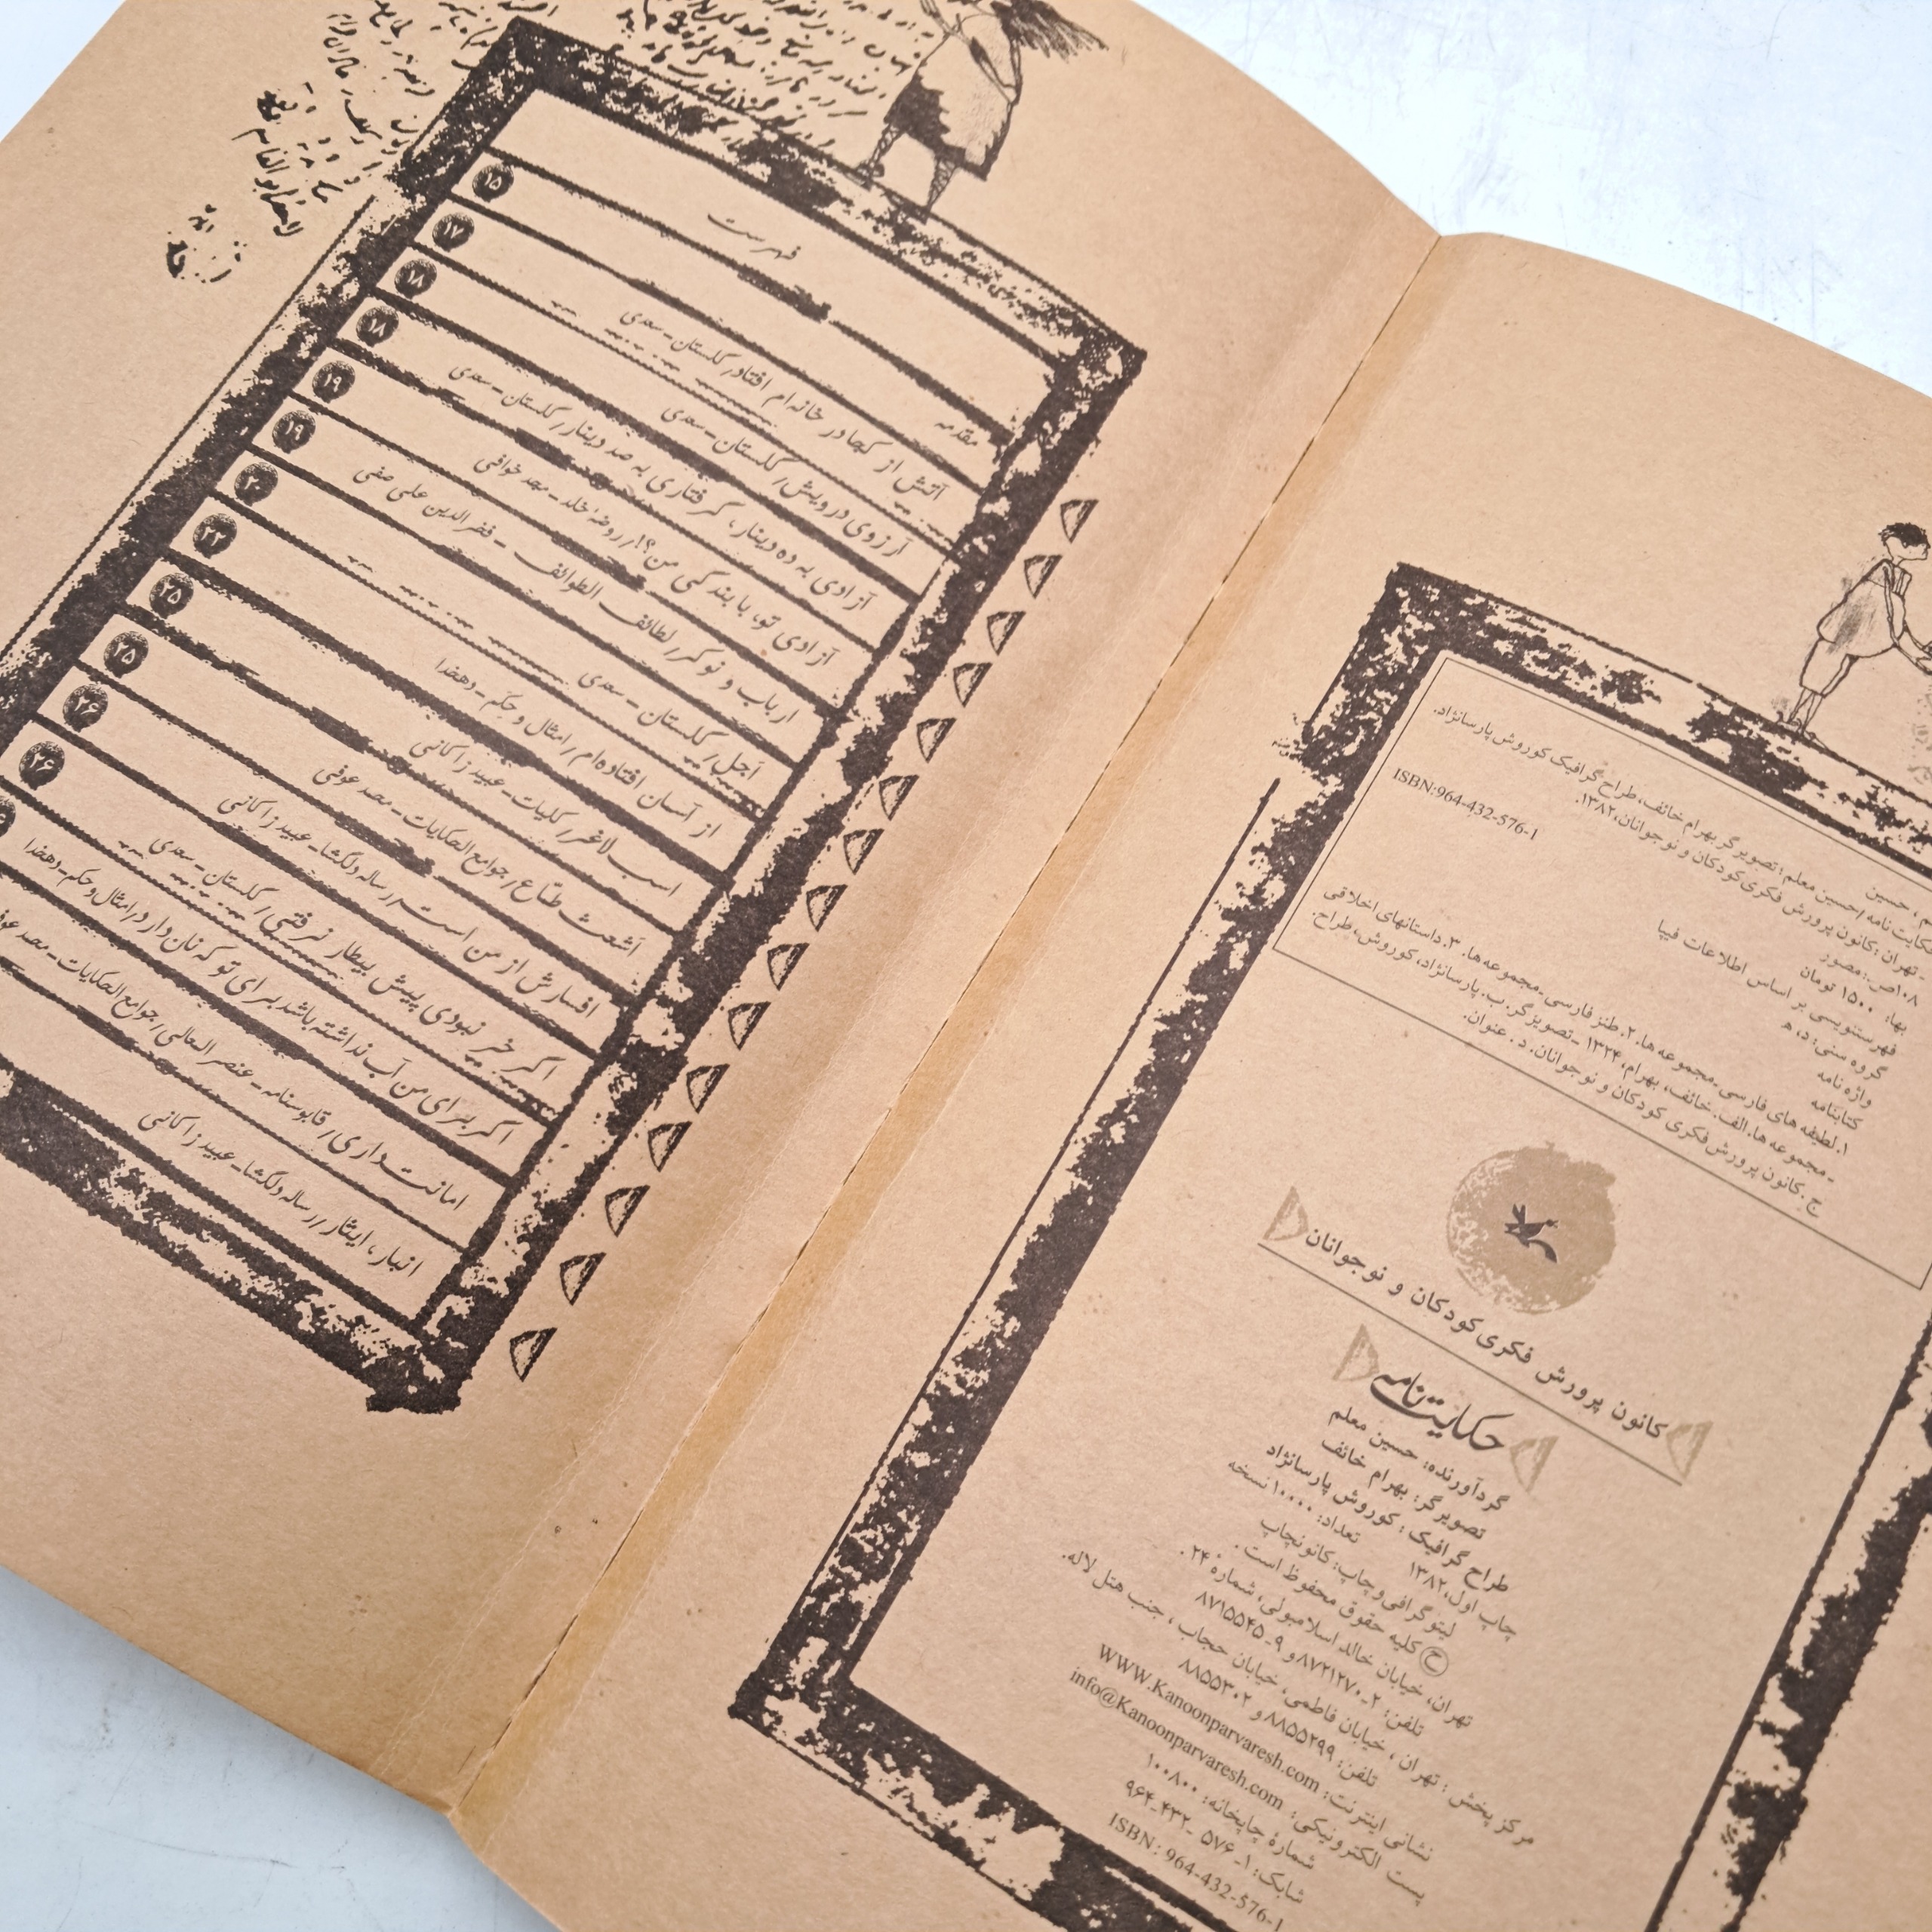 حسین
حکایت نامه / حسین معلم؛ تصویرگر بهرام خائف، طراح گرافیک کوروش پارسانژاد.
تهران: کانون پرورش فکری کودکان و نوجوانان، ۱۳۸۲.
۱۰۸ص.: مصور
ISBN:964-432-576-1
بها: ۱۵۰۰ تومان
فهرستنویسی بر اساس اطلاعات فیپا
گروه سنی: د، ه
واژه نامه
کتابنامه
۱. لطیفه های فارسی ـ مجموعه ها. ۲. طنز فارسی ـ مجموعه ها. ۳. داستانهای اخلاقی
ـ مجموعه ها. الف. خائف، بهرام، ۱۳۲۴ ـ تصویرگر. ب. پارسانژاد، کوروش، طراح.
ج. کانون پرورش فکری کودکان و نوجوانان. د. عنوان.
کانون پرورش فکری کودکان و نوجوانان
حکایت نامه
گردآورنده: حسین معلم
تصویرگر: بهرام خائف
طراح گرافیک: کوروش پارسانژاد
چاپ اول، ۱۳۸۲ تعداد: ۱۰۰۰۰ نسخه
لیتوگرافی و چاپ: کانونچاپ
ح کلیه حقوق محفوظ است.
تهران، خیابان خالد اسلامبولی، شماره ۲۴.
تلفن: ۲ـ۸۷۲۱۲۷۰ و ۹ـ۸۷۱۵۵۴۵
مرکز پخش: تهران، خیابان فاطمی، خیابان حجاب، جنب هتل لاله.
تلفن: ۸۸۵۵۲۹۹ و ۸۸۵۵۳۰۲
نشانی اینترنت: WWW.Kanoonparvaresh.com
پست الکترونیکی: info@Kanoonparvaresh.com
شمارهٔ چاپخانه: ۱۰۰۸۰۰
شابک: ۱ـ ۵۷۶ ـ۴۳۲ـ۹۶۴
ISBN: 964-432-576-1
فهرست
مقدمه ۱۵
آتش از کجا در خانه ام افتاد / گلستان ـ سعدی ۱۷
آرزوی درویش / گلستان ـ سعدی ۱۸
آزادی به ده دینار، گرفتاری به صد دینار / گلستان ـ سعدی ۱۸
آزادی تو، با بندگی من؟! / روضهٔ خلد ـ مجد خوافی ۱۹
ارباب و نوکر / لطائف الطوائف ـ فخرالدین علی صفی ۱۹
اجل / گلستان ـ سعدی ۲۰
از آسمان افتاده ام / امثال و حکم ـ دهخدا ۲۲
اسب لاغر / کلیات ـ عبید زاکانی ۲۵
اشعث طماع / جوامع الحکایات ـ محمد عوفی ۲۵
افسارش از من است / رساله دلگشا ـ عبید زاکانی ۲۶
اگر خر نبودی پیش بیطار نرفتی / گلستان ـ سعدی ۲۶
اگر برای من آب نداشته باشد برای تو که نان دارد / امثال و حکم ـ دهخدا
امانت داری / قابوسنامه ـ عنصرالمعالی / جوامع الحکایات ـ محمد عوفی
انبار، ایثار / رساله دلگشا ـ عبید زاکانی